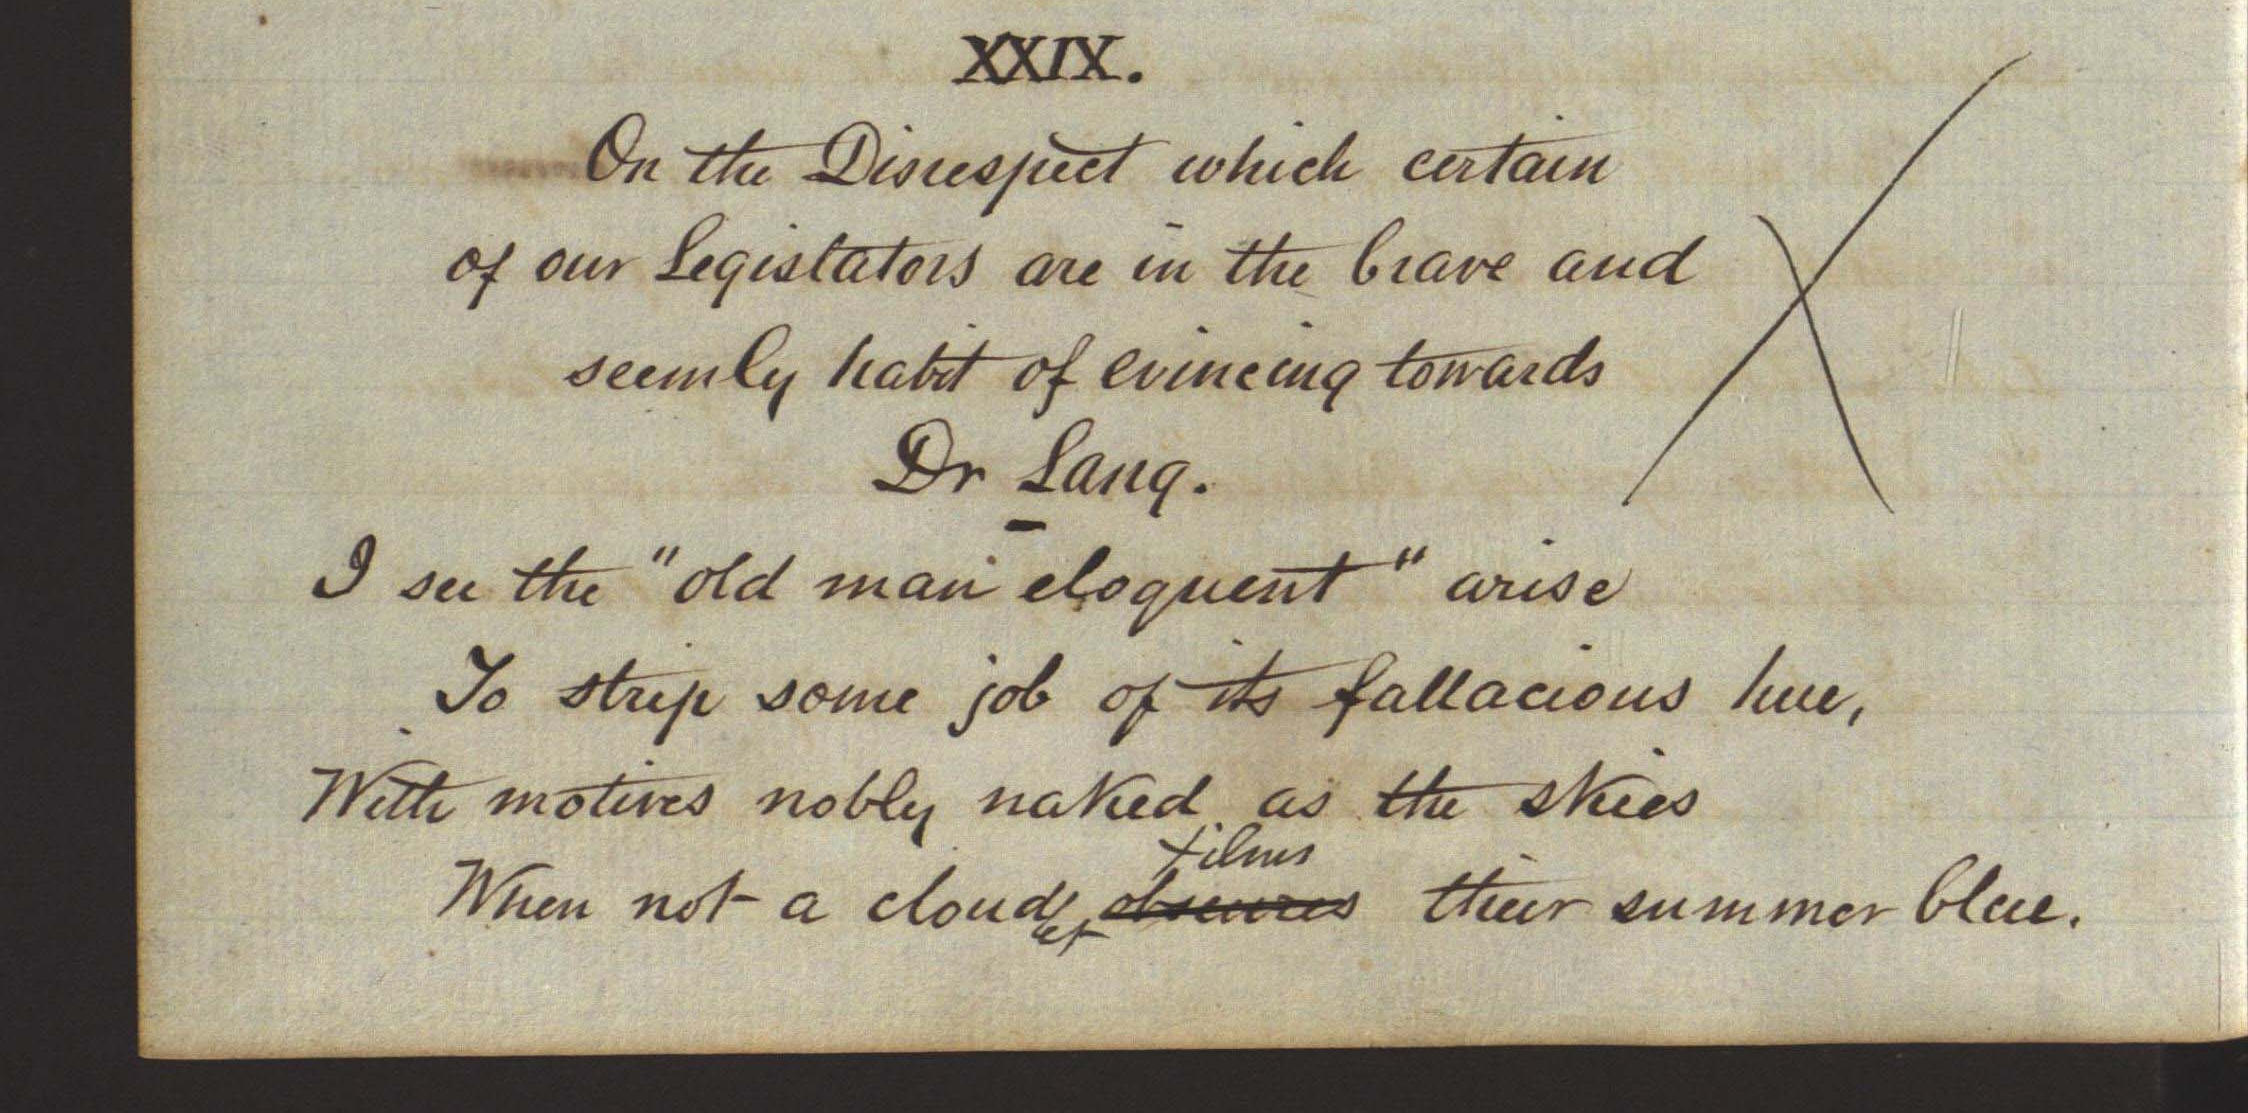 XXIX.
On the Disrespect which certain
of our Legislators are in the brave and
seemly habit of evincing towards
Dr Lang.
I see the "old man eloquent" arise
To strip some job of its fallacious hue,
With motives nobly naked as the skies
films
When not a cloudlet obscures their summer blue.